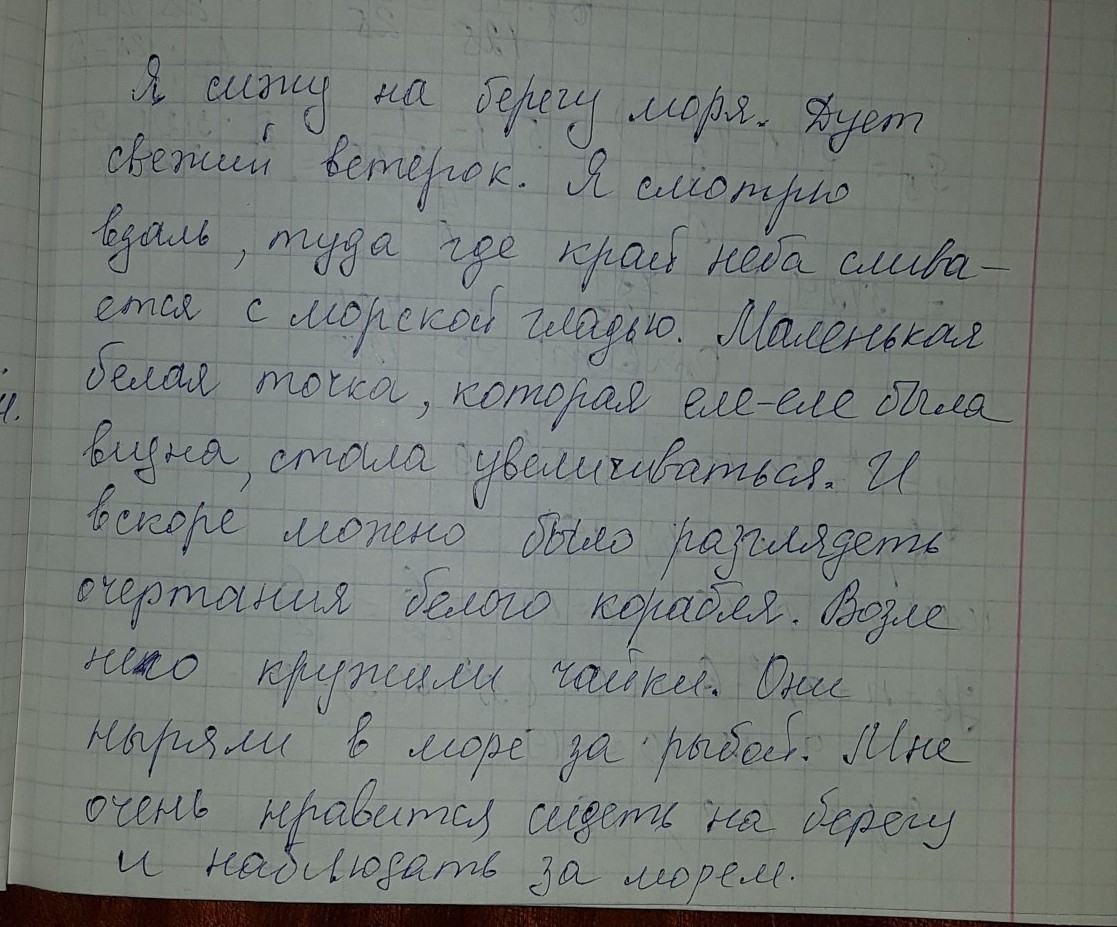 Я сижу на берегу моря. Дует
свежий ветерок. Я смотрю
вдаль, туда где край неба слива-
ется с морской гладью. Маленькая
белая точка, которая еле-еле была
видна, стала увеличиваться. И
вскоре можно было разглядеть
очертания белого корабля. Возле
него кружили чайки. Они
ныряли в море за рыбой. Мне
очень нравится сидеть на берегу
и наблюдать за морем.